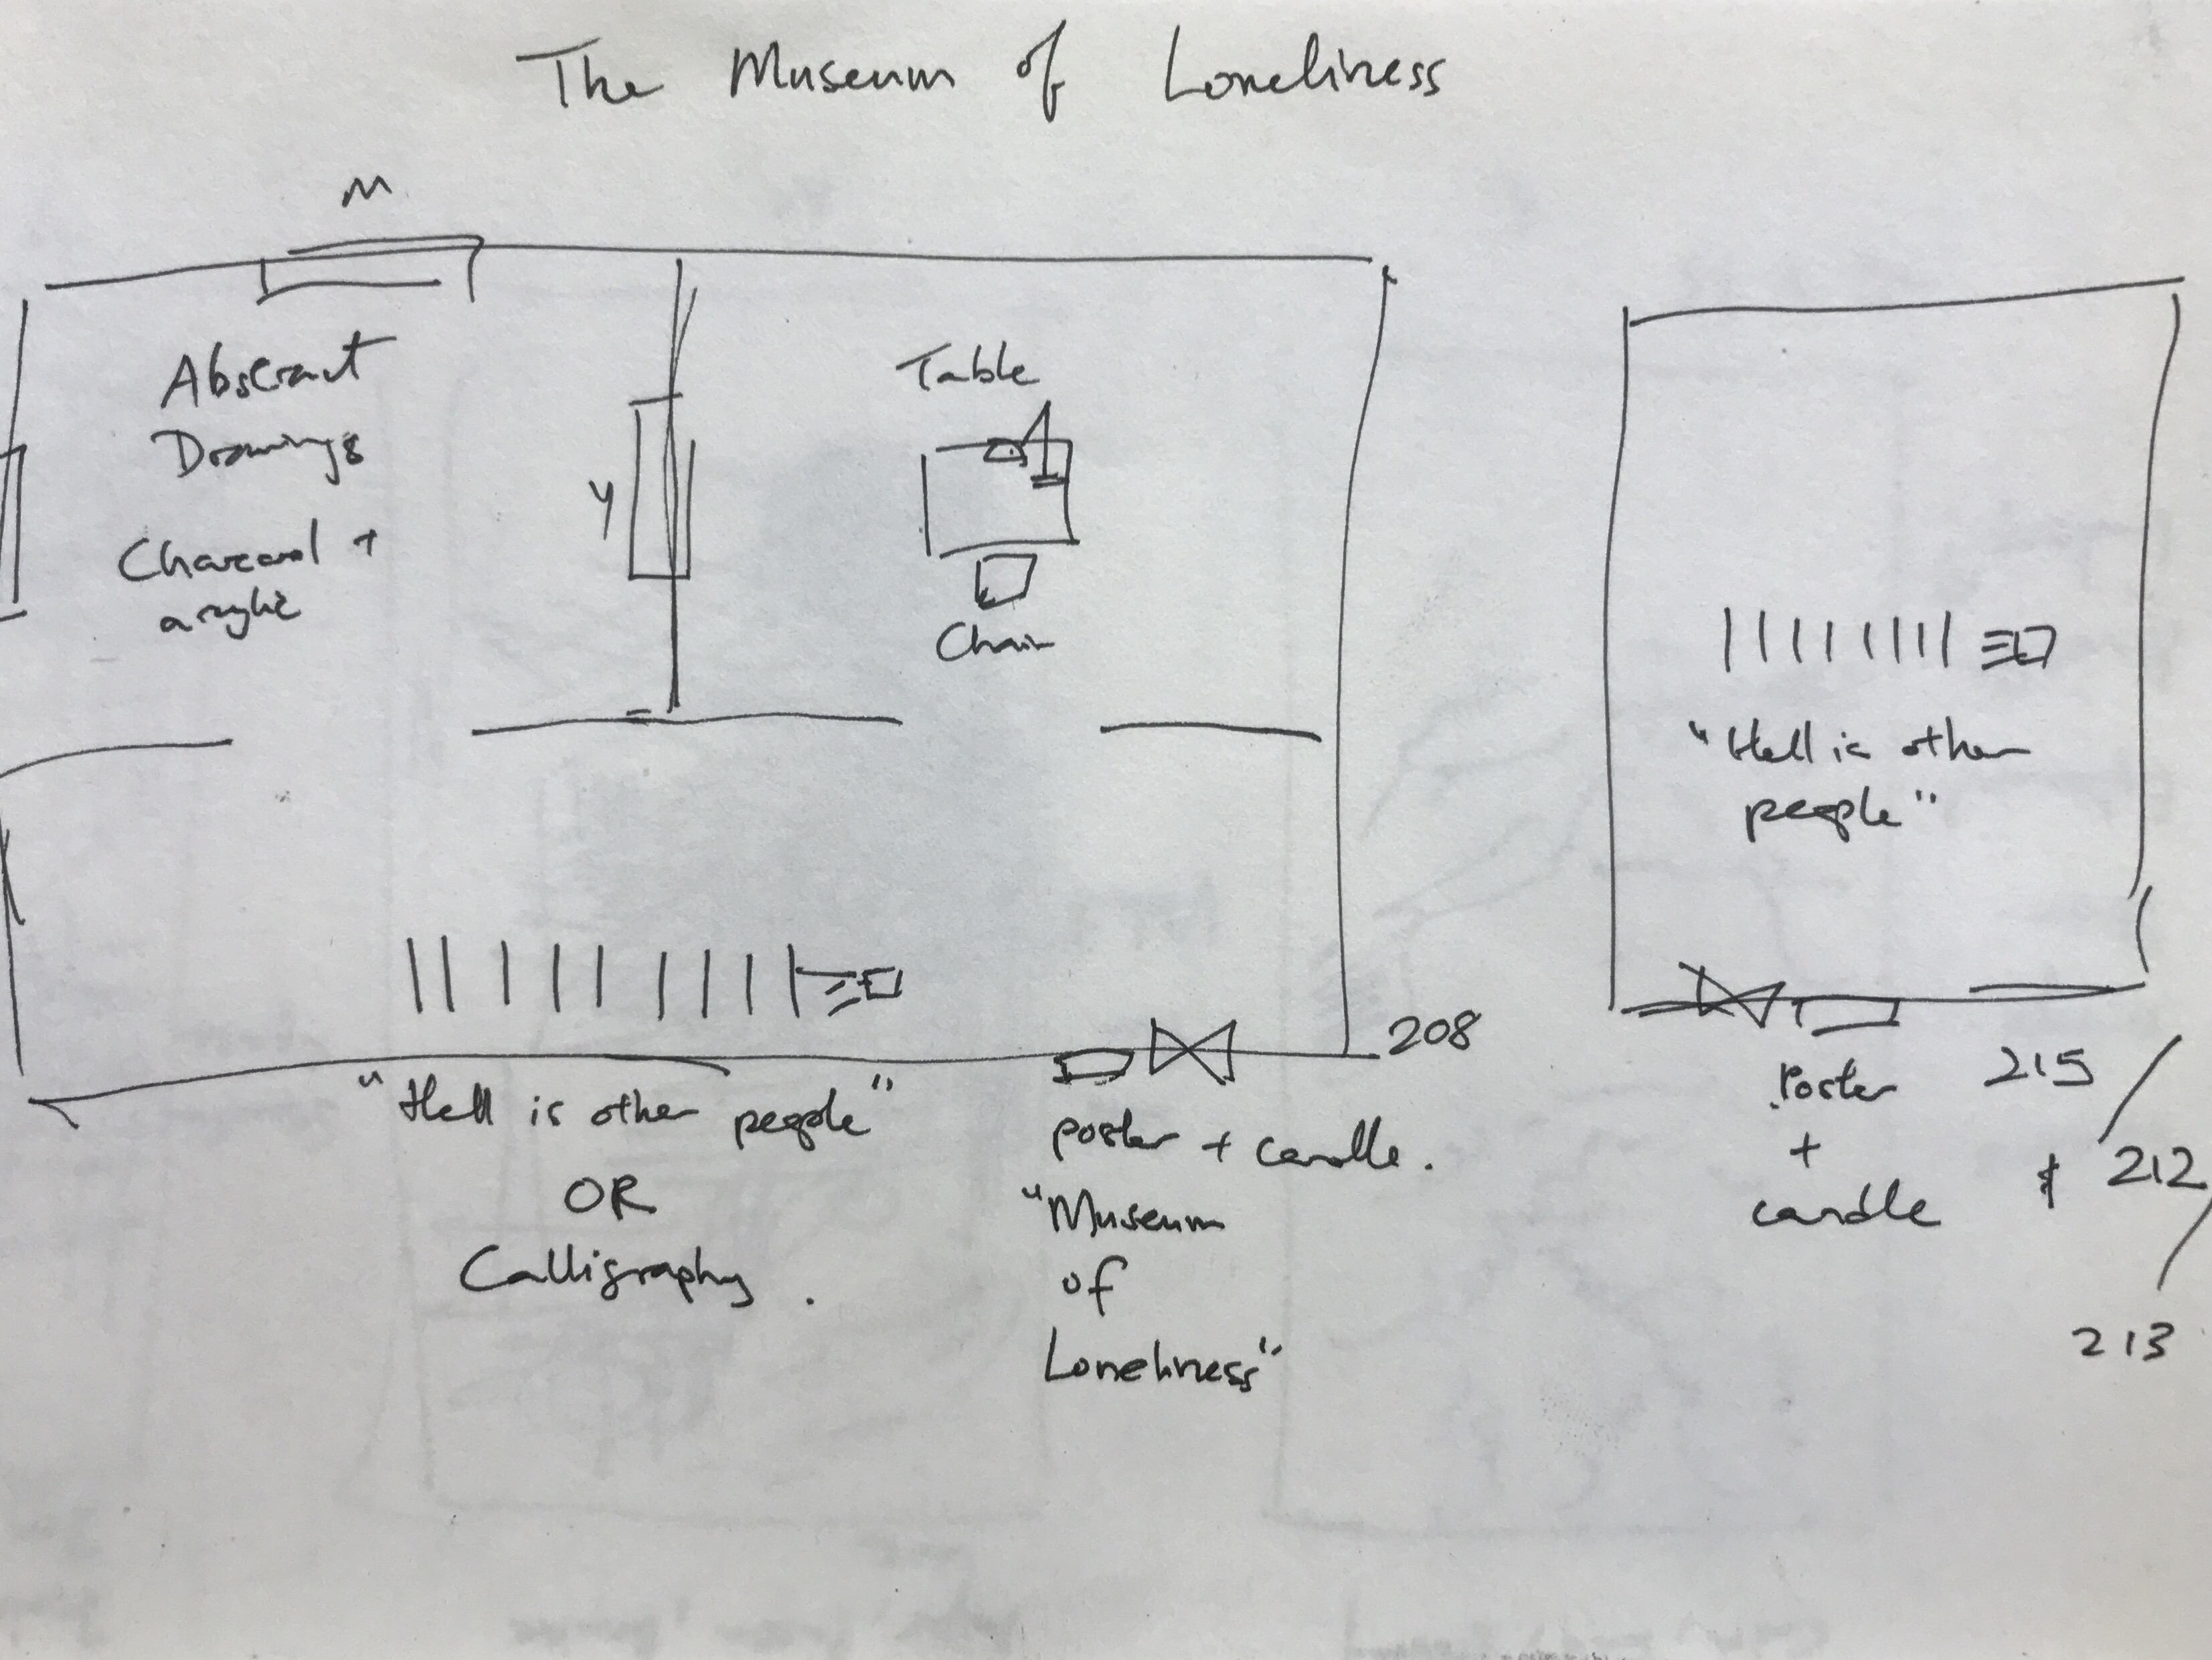 The Museum of Loneliness
M
Abstract
Drawings
Charcoal +
acrylic
Y
Table
Chair
"Hell is other people"
OR
Calligraphy.
208
poster + candle.
"Museum
of
Loneliness"
"Hell is other
people"
Poster
+
candle
215
& 212
213